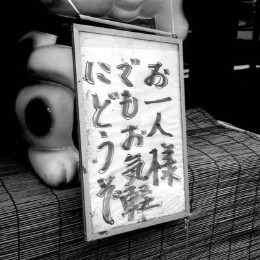 お一人様
でもお気軽
にどうぞ